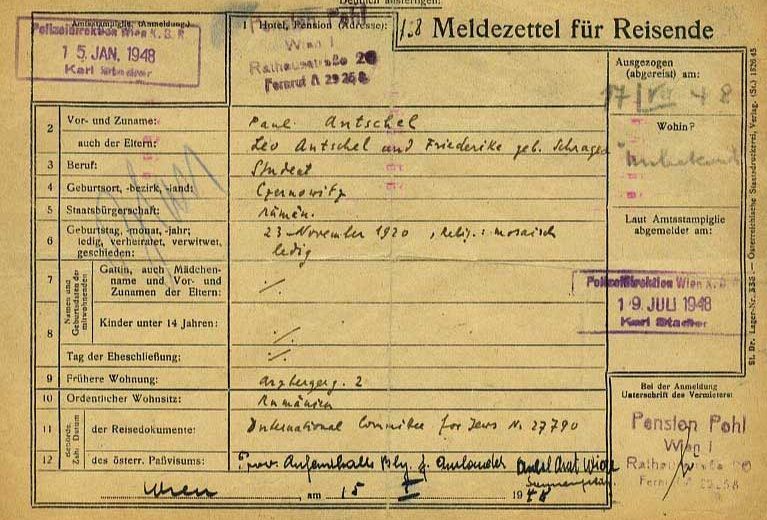 Deutlich ausfertigen!
Amtsstampiglie, (Anmeldung.)
Polizeidirektion Wien K.B.R.
15. JAN. 1948
Karl Stadler
1 Hotel, Pension (Adresse):
Pension Pohl
Wien I
Rathausstraße 20
Fernruf A 29 2 58
138 Meldezettel für Reisende
Ausgezogen
(abgereist) am:
17/VII 48
Wohin?
unbekannt
Laut Amtsstampiglie
abgemeldet am:
Polizeidirektion Wien K.B.
19. JULI 1948
Karl Stadler
2 Vor- und Zuname: Paul Antschel
auch der Eltern: Leo Antschel und Friederike geb. Schrager
3 Beruf: Student
4 Geburtsort, -bezirk, -land: Czernowitz
5 Staatsbürgerschaft: rumän.
6 Geburtstag, -monat, -jahr; 23. November 1920, Relig.: mosaisch
ledig, verheiratet, verwitwet, ledig
geschieden:
Namen und Geburtsdaten der mitwohnenden
7 Gattin, auch Mädchen-
name und Vor- und ./.
Zunamen der Eltern:
8 Kinder unter 14 Jahren: ./.
Tag der Eheschließung: ./.
9 Frühere Wohnung: Arzbergerg. 2
10 Ordentlicher Wohnsitz: Rumänien
Behörde, Zahl, Datum
11 der Reisedokumente: International Committee for Jews N. 27790
12 des österr. Paßvisums: Prov. Aufenthalts
Wien am 15 I 1948
Bei der Anmeldung
Unterschrift des Vermieters:
Pension Pohl
Wien I
Rathausstraße 20
Fernruf A 29 2 58
St. Dr. Lager-Nr. 335. — Österreichische Staatsdruckerei, Verlag. (St.) 1526 45